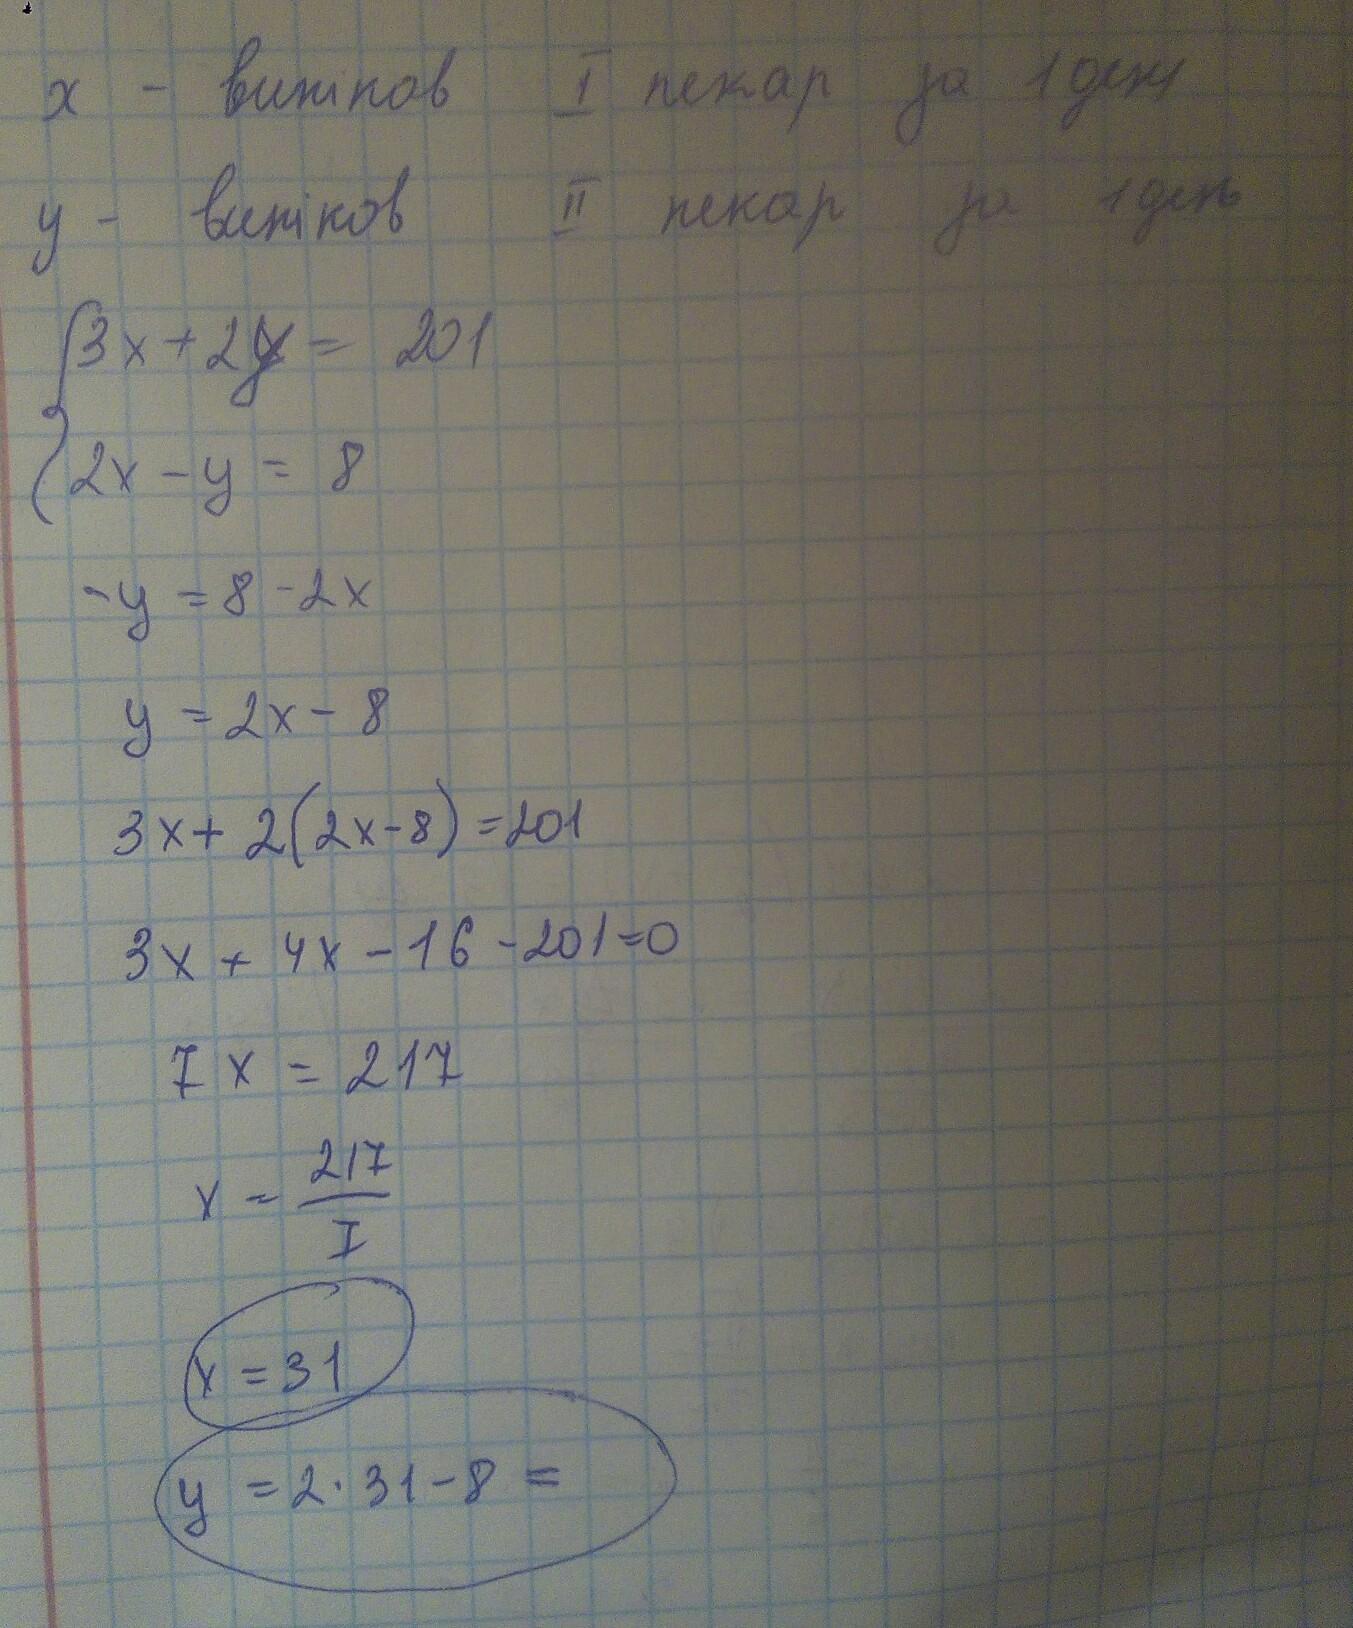 x - випіков I пекар за 1 день
y - випіков II пекар за 1 день
3x + 2y = 201
2x - y = 8
-y = 8 - 2x
y = 2x - 8
3x + 2(2x-8) = 201
3x + 4x - 16 - 201 = 0
7x = 217
x = 217/7
x = 31
y = 2·31 - 8 =